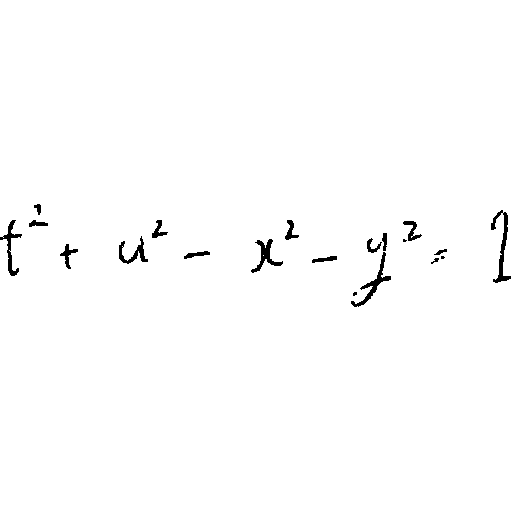 t² + u² - x² - y² = 1